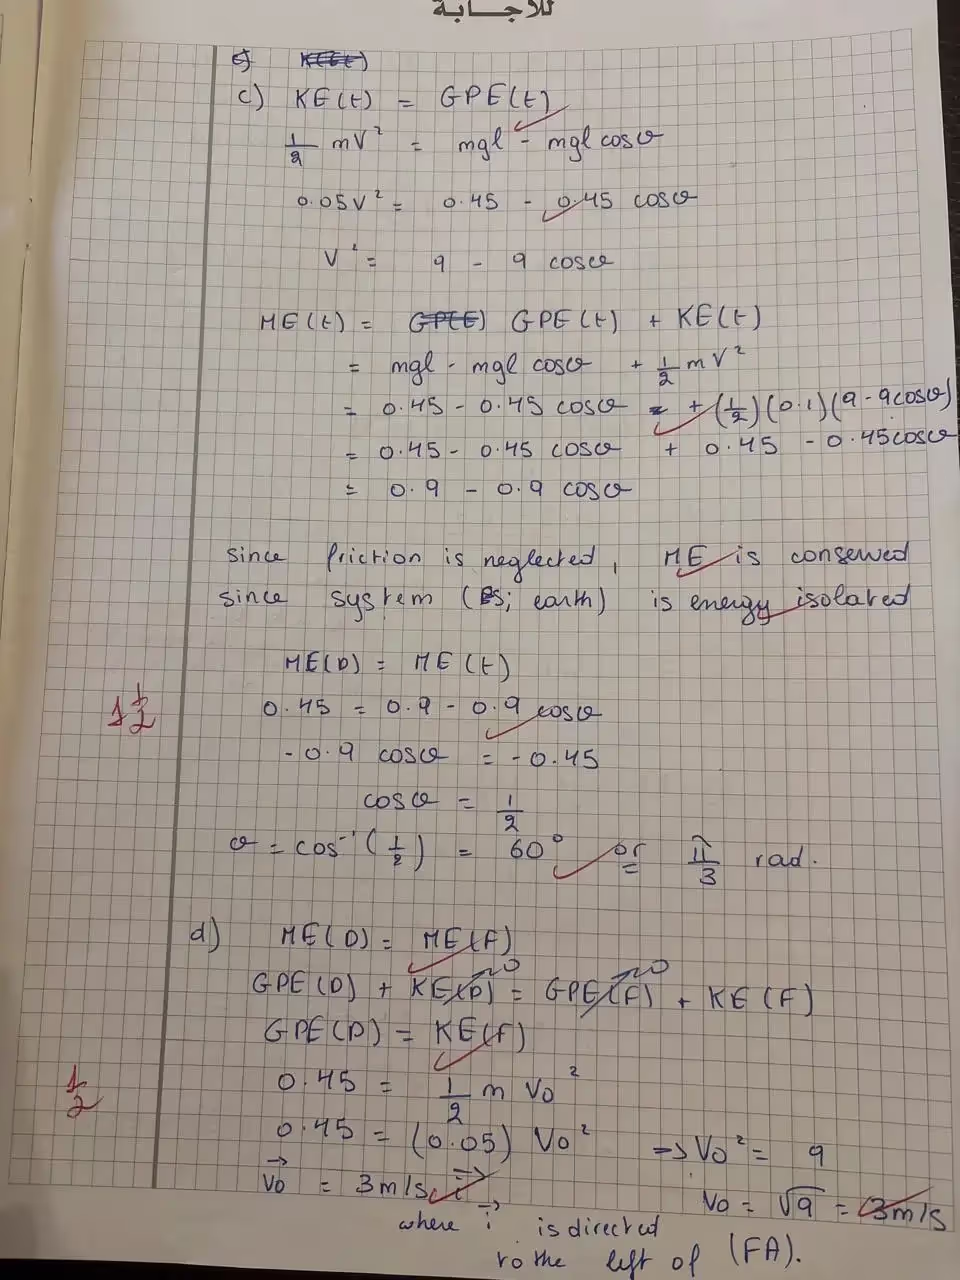 للاجابة
c) KE(t) = GPE(t)
1/2 mV² = mgl - mgl cosθ
0.05V² = 0.45 - 0.45 cosθ
V² = 9 - 9 cosθ
ME(t) = GPE(t) + KE(t)
= mgl - mgl cosθ + 1/2 mV²
= 0.45 - 0.45 cosθ + (1/2)(0.1)(9 - 9cosθ)
= 0.45 - 0.45 cosθ + 0.45 - 0.45cosθ
= 0.9 - 0.9 cosθ
since friction is neglected, ME is conserved
since system (S; earth) is energy isolated
ME(D) = ME(t)
1 1/2
0.45 = 0.9 - 0.9 cosθ
-0.9 cosθ = -0.45
cosθ = 1/2
θ = cos⁻¹(1/2) = 60° or π/3 rad.
d) ME(D) = ME(F)
GPE(D) + KE(D) = GPE(F) + KE(F)
GPE(D) = KE(F)
1/2
0.45 = 1/2 m Vo²
0.45 = (0.05) Vo² → Vo² = 9
Vo = 3m/s i Vo = √9 = 3m/s
where i is directed
to the left of (FA).